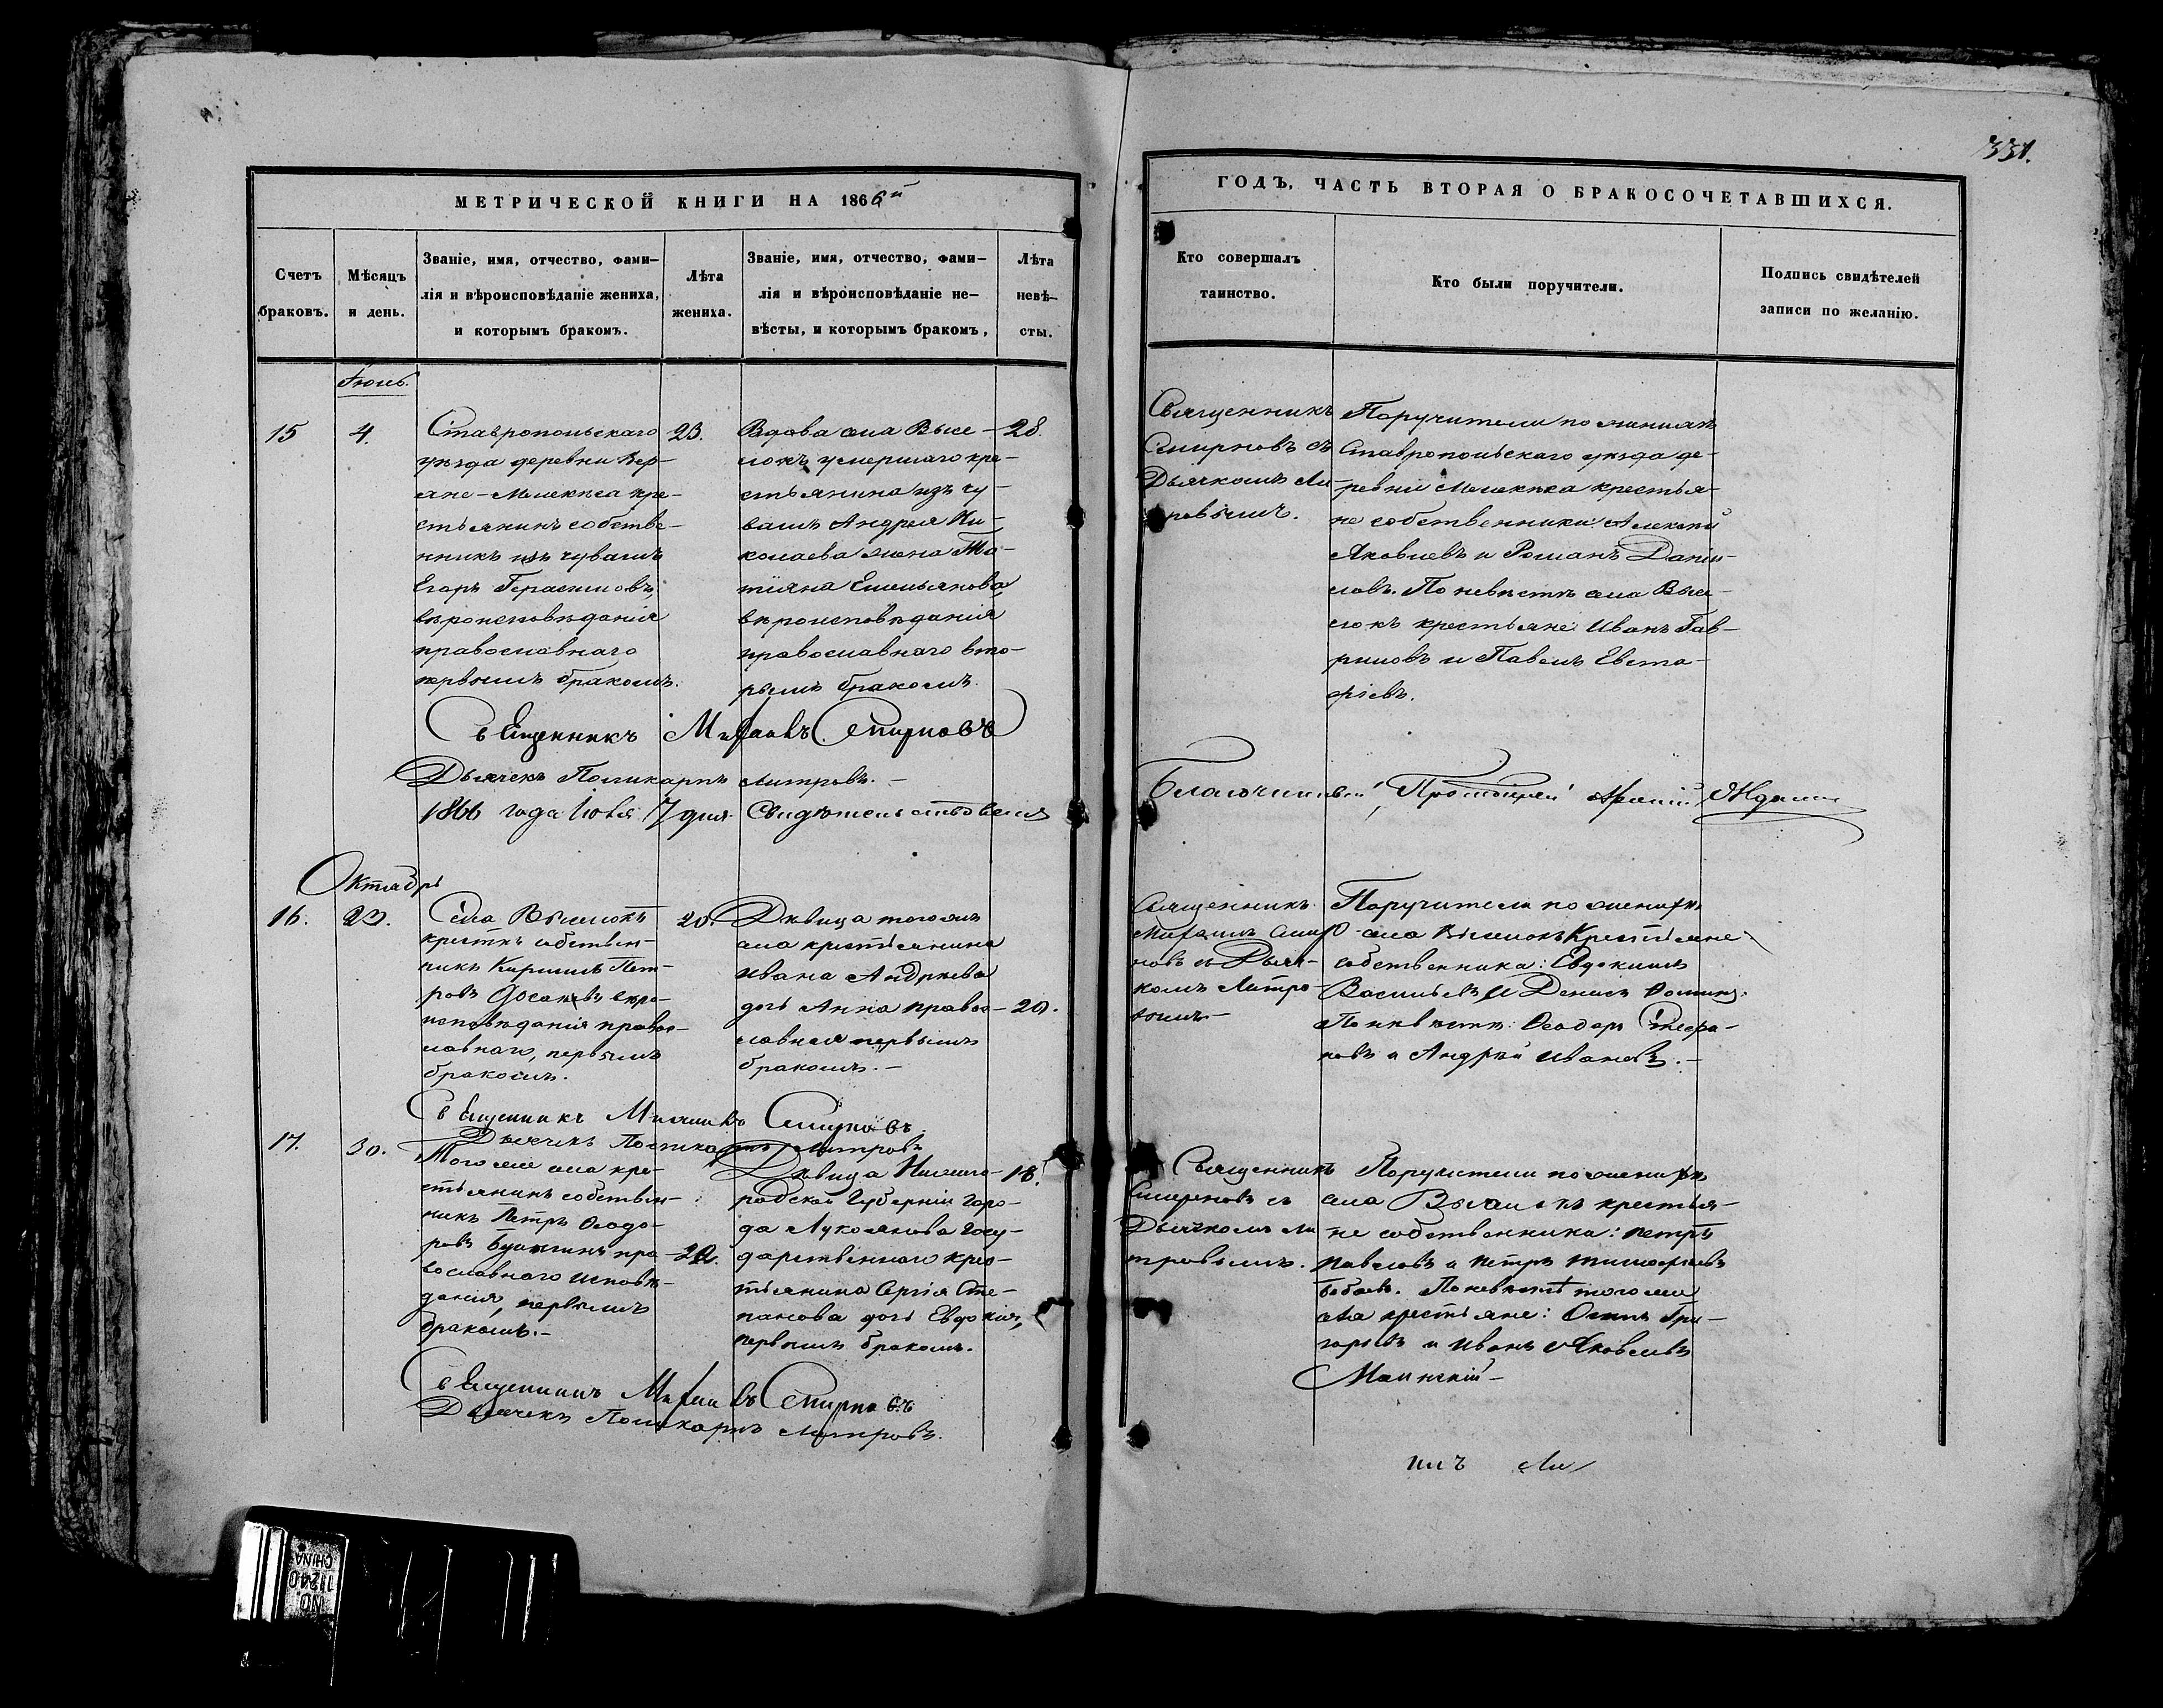 331.
МЕТРИЧЕСКОЙ КНИГИ НА 1866й
Счетъ
браковъ.
Мѣсяцъ
и день.
Званіе, имя, отчество, фами-
лія и вѣроисповѣданіе жениха,
и которымъ бракомъ.
Лѣта
жениха.
Званіе, имя, отчество, фами-
лія и вѣроисповѣданіе не-
вѣсты, и которымъ бракомъ,
Лѣта
невѣ-
сты.
ГОДЪ, ЧАСТЬ ВТОРАЯ О БРАКОСОЧЕТАВШИХСЯ.
Кто совершалъ
таинство.
Кто были поручители.
Подпись свидѣтелей
записи по желанію.
Іюнь.
15
4.
Ставропольскаго
уѣзда деревни Вер-
хне-Мелекеса кре-
стьянинъ собстве-
нникъ изъ чувашъ
Егоръ Герасимовъ,
вѣроисповѣданія
православнаго
первымъ бракомъ.
23.
Вдова села Высе-
локъ умершаго кре-
стьянина изъ чу-
вашъ Андрея Ни-
колаева жена Та-
тіяна Емельянова,
вѣроисповѣданія
православнаго вто-
рымъ бракомъ.
28.
Священникъ
Смирновъ съ
Дьячкомъ Ли-
тровымъ.
Поручители по женихѣ
Ставропольскаго уѣзда де-
ревни Мелекеса крестья-
не собственники: Алексѣй
Яковлевъ и Романъ Данiи-
ловъ. По невѣстѣ села Высе-
локъ крестьяне Иванъ Гав-
риловъ и Павелъ Евста-
фіевъ.
Священникъ Михаилъ Смирновъ
Дьячекъ Поликарпъ Литровъ.-
1866 года Іюля 7 дня. Свидѣтельствовалъ
Благочинный, Протоіерей
Октябрь
16.
23.
Села Выселокъ
крестнъ собствен-
никъ Кирилъ Пет-
ровъ вѣро-
исповѣданія право-
славнаго, первымъ
бракомъ.
20.
Дѣвица того же
села крестьянина
Ивана Андреева
дочь Анна право-
славная первымъ
бракомъ.-
20.
Священникъ
Михаилъ Смир-
новъ съ Дьяч-
комъ Литро-
вымъ-
Поручители по женихѣ
села Выселокъ Крестьяне
собственника: Евдокимъ
Васильевъ и Денисъ Фоминъ.
По невѣстѣ: Ѳеодоръ Стефа-
новъ и Андрей Ивановъ.-
Священникъ Михаилъ Смирновъ
Дьячекъ Поликарпъ Литровъ
17.
30.
Того же села кре-
стьянинъ собствен-
никъ Петръ Ѳеодо-
ровъ пра-
вославнаго исповѣ-
данія, первымъ
бракомъ.-
Дѣвица Нижего-
родской Губерніи горо-
да Лукоянова госу-
дарственнаго крес-
тьянина Сергія Сте-
панова дочь Евдокія,
первымъ бракомъ.
18.
Священникъ
Смирновъ съ
Дьячкомъ Ли-
тровымъ.
Поручители по женихѣ
села Выселокъ крестья-
не собственника: Петръ
Павловъ и Петръ Тимофѣевъ
По невѣстѣ того же
села крестьяне: Осипъ Гри-
горьевъ и Иванъ Яковлевъ
Священникъ Михаилъ Смирновъ
Дьячекъ Поликарпъ Литровъ.
NO.
11240
CHINA